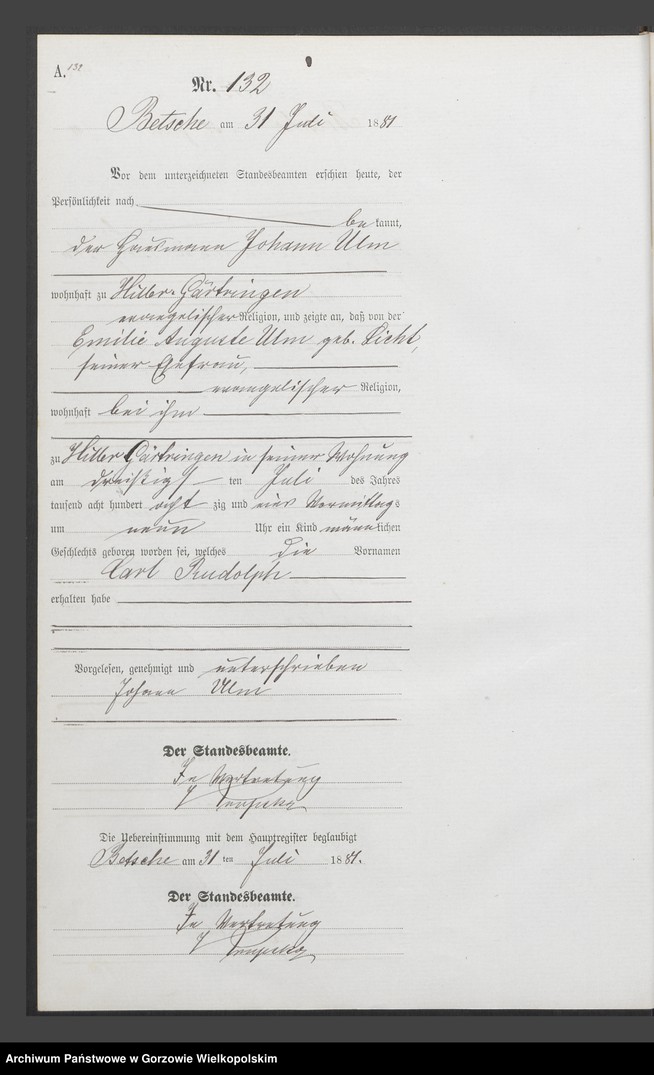 A. 132
Nr. 132
Betsche am 31 Juli 1881
Vor dem unterzeichneten Standesbeamten erschien heute, der
Persönlichkeit nach
be kannt,
der Hausmann Johann Ulm
wohnhaft zu Hiller-Gärtringen
evangelischer Religion, und zeigte an, daß von der
Emilie Auguste Ulm geb. Licht,
seiner Ehefrau,
evangelischer Religion,
wohnhaft bei ihm
zu Hiller Gärtringen in seiner Wohnung
am dreißigs ten Juli des Jahres
tausend acht hundert acht zig und eins Vormittags
um neun Uhr ein Kind männlichen
Geschlechts geboren worden sei, welches die Vornamen
Carl Rudolph
erhalten habe
Vorgelesen, genehmigt und unterschrieben
Johann Ulm
Der Standesbeamte.
In Vertretung
Die Uebereinstimmung mit dem Hauptregister beglaubigt
Betsche am 31 ten Juli 1881.
Der Standesbeamte.
In Vertretung
Archiwum Państwowe w Gorzowie Wielkopolskim